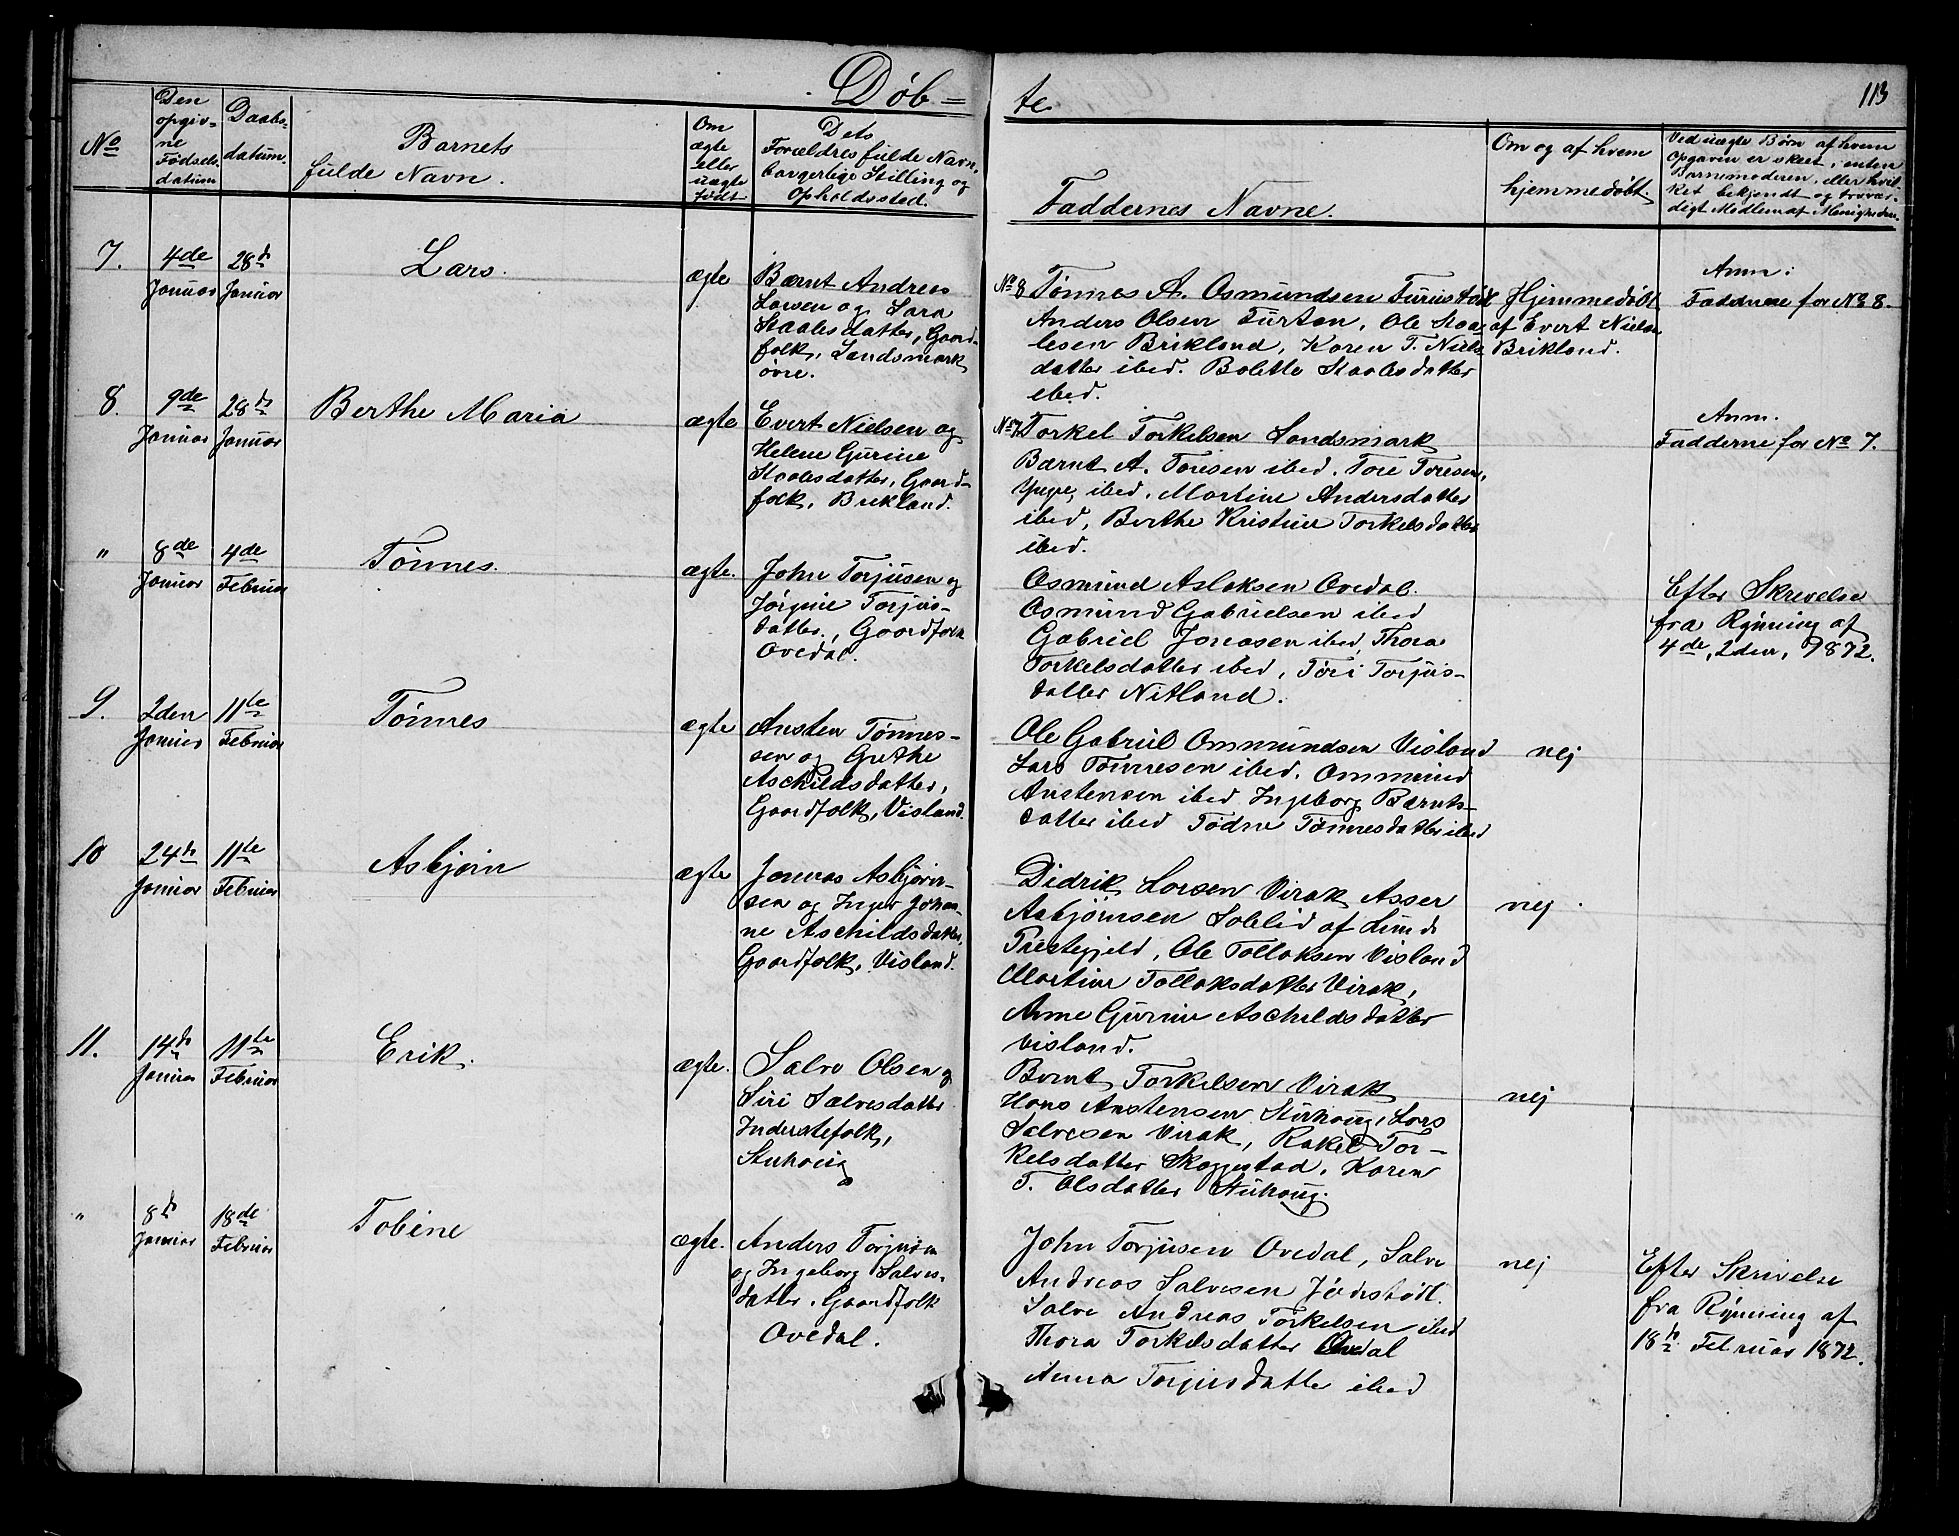 Døb=
te.
113
No
Den
opgiv=
ne
Fødsels
datum
Daabs=
datum.
Barnets
fulde Navn.
Om
ægte
eller
uægte
født
Dets
Forældres fulde Navn,
borgerlige Stilling og
Opholdssted.
Faddernes Navne.
Om og af hvem
hjemmedøbt.
Ved uægte Børn af hvem
Opgaven er skeet, enten
Barnemoderen, eller hvil-
ket bekjendt og trovær-
digt Medlem af Menigheden.
7.
4de
Januar
28d
Januar
Lars.
ægte
Bærnt Andreas
Larsen og Sara
Staalesdatter, Gaard-
folk, Landsmark
øvre.
No 8 Tønnes A. Osmundsen
Anders Olsen Turton, Ole Staa-
lesen Brikland, Karen T. Niels
datter ibid. Bolette Staalesdatter
ibid.
Hjemmedøbt
af Evert Nielsen
Brikland.
Anm:
Fadderne for No 8.
8.
9de
Januar
28d
Januar
Berthe Maria
ægte
Evert Nielsen og
Helene Gurine
Staalesdatter, Gaard-
folk, Brikland.
No 7. Torkel Torkelsen Landsmark
Bærnt A. Toresen ibid. Tore Toresen,
ibid, Martine Andersdatter
ibid, Berthe Kristine Torkelsdatter
ibid.
Anm.
Fadderne for No 7.
"
8de
Januar
4de
Februar
Tønnes.
ægte.
John Torjusen og
Jørgine Torjus-
datter., Gaardfolk
Ovedal.
Osmund Aslaksen Ovedal.
Osmund Gabrielsen ibid
Gabriel Jonasen ibid, Thora
Torkelsdatter ibid, Tøri Torjus-
datter Nitland.
Efter Skrivelse
fra Rynning af
4de, 2den, 1872.
9.
2den
Januar
11te
Februar
Tønnes
ægte
Austen Tønnes-
sen og Grethe
Aschildsdatter,
Gaardfolk, Visland.
Ole Gabriel Ommundsen Visland
Lars Tønnesen ibid. Ommund
Austensen ibid Ingeborg Bærnts-
datter ibid Tødne Tønnesdatter ibid
nej
10
24d
Januar
11te
Februar
Asbjørn
ægte
Jonas Asbjørn-
sen og Inger Johan-
ne Aschildsdatter,
Gaardfolk, Visland.
Didrik Larsen Virak Asser
Asbjørnsen Solelid af Lunds
Prestegjeld, Ole Tollaksen Visland
Martine Tollaksdatter Virak,
Anne Gurine Aschildsdatter
Visland.
nej.
11.
14d
Januar
11te
Februar
Erik.
ægte.
Salve Olsen og
Siri Salvesdatter
Inderstefolk,
Stuhoug
Bernt Torkelsen Virak
Hans Austensen Stuhoug, Lars
Salvesen Virak, Rakel Tor-
kelsdatter Skoggestad, Karen
T. Olsdatter Stuhoug.
nej
"
8d
Januar
18de
Februar
Tobine
ægte.
Anders Torjusen
og Ingeborg Salves-
datter. Gaardfolk
Ovedal.
John Torjusen Ovedal, Salve
Andreas Salvesen Jødestøl.
Salve Andreas Torkelsen ibid
Thora Torkelsdatter Ovedal
Anna Torjusdatter ibid
nej
Efter Skrivelse
fra Rynning af
18d Februar 1872.